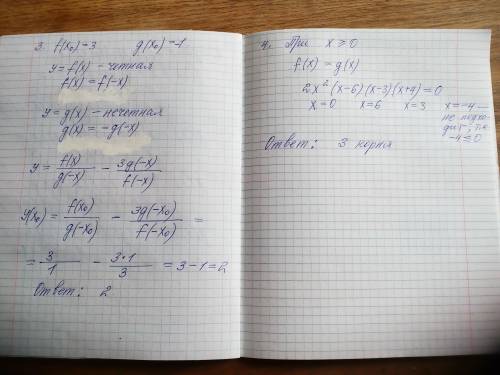 3. f(x₀)=3 g(x₀)=-1
y=f(x) – четная
f(x) = f(-x)
y=g(x) – нечетная
g(x) = -g(-x)
y = f(x)/g(-x) - 3g(-x)/f(-x)
y(x₀) = f(x₀)/g(-x₀) - 3g(-x₀)/f(-x₀) =
= 3/1 - 3·1/3 = 3-1=2
Ответ: 2
4. При x ≥ 0
f(x) = g(x)
2x²(x-6)(x-3)(x+4)=0
x=0 x=6 x=3 x=-4 –
не подхо-
дит, т.к
-4≤0
Ответ: 3 корня